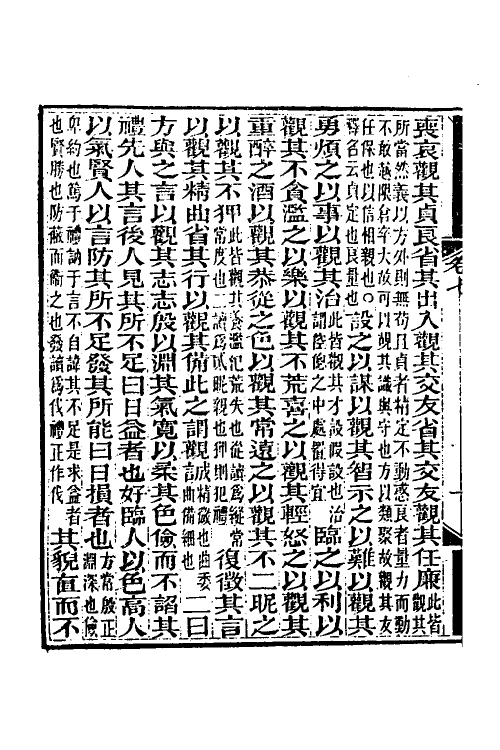 卷七
喪哀觀其貞良省其出入觀其交友省其交友觀其任廉此皆觀其
所當然義以方外則無苟且貞者精定不動惑良者量力而動
不敢越限倉卒大故可以覘其識與守也方以類聚故觀其友
任保也以信相親也○釋名云貞定也良量也設之以謀以觀其智示之以難以觀其
勇煩之以事以觀其治此皆觀其才設假設也治謂倉卒之中處置得宜臨之以利以
觀其不貪濫之以樂以觀其不荒喜之以觀其輕怒之以觀其
重醉之酒以觀其恭從之色以觀其常遠之以觀其不二昵之
以觀其不狎此皆觀其養濫氾荒失也從讀爲縱常常度也二讀爲貳昵親也狎則犯禮復徵其言
以觀其精曲省其行以觀其備此之謂觀誠精微也曲委曲備細也二曰
方與之言以觀其志志殷以淵其氣寬以柔其色儉而不諂其
禮先人其言後人見其所不足曰日益者也好臨人以色高人
以氣賢人以言防其所不足發其所能曰日損者也方常殷正淵深也儉
卑約也篤于禮訥于言不自諱其不足是求益者也賢勝也防蔽而衞之也發讀爲伐禮正作伐其貌直而不